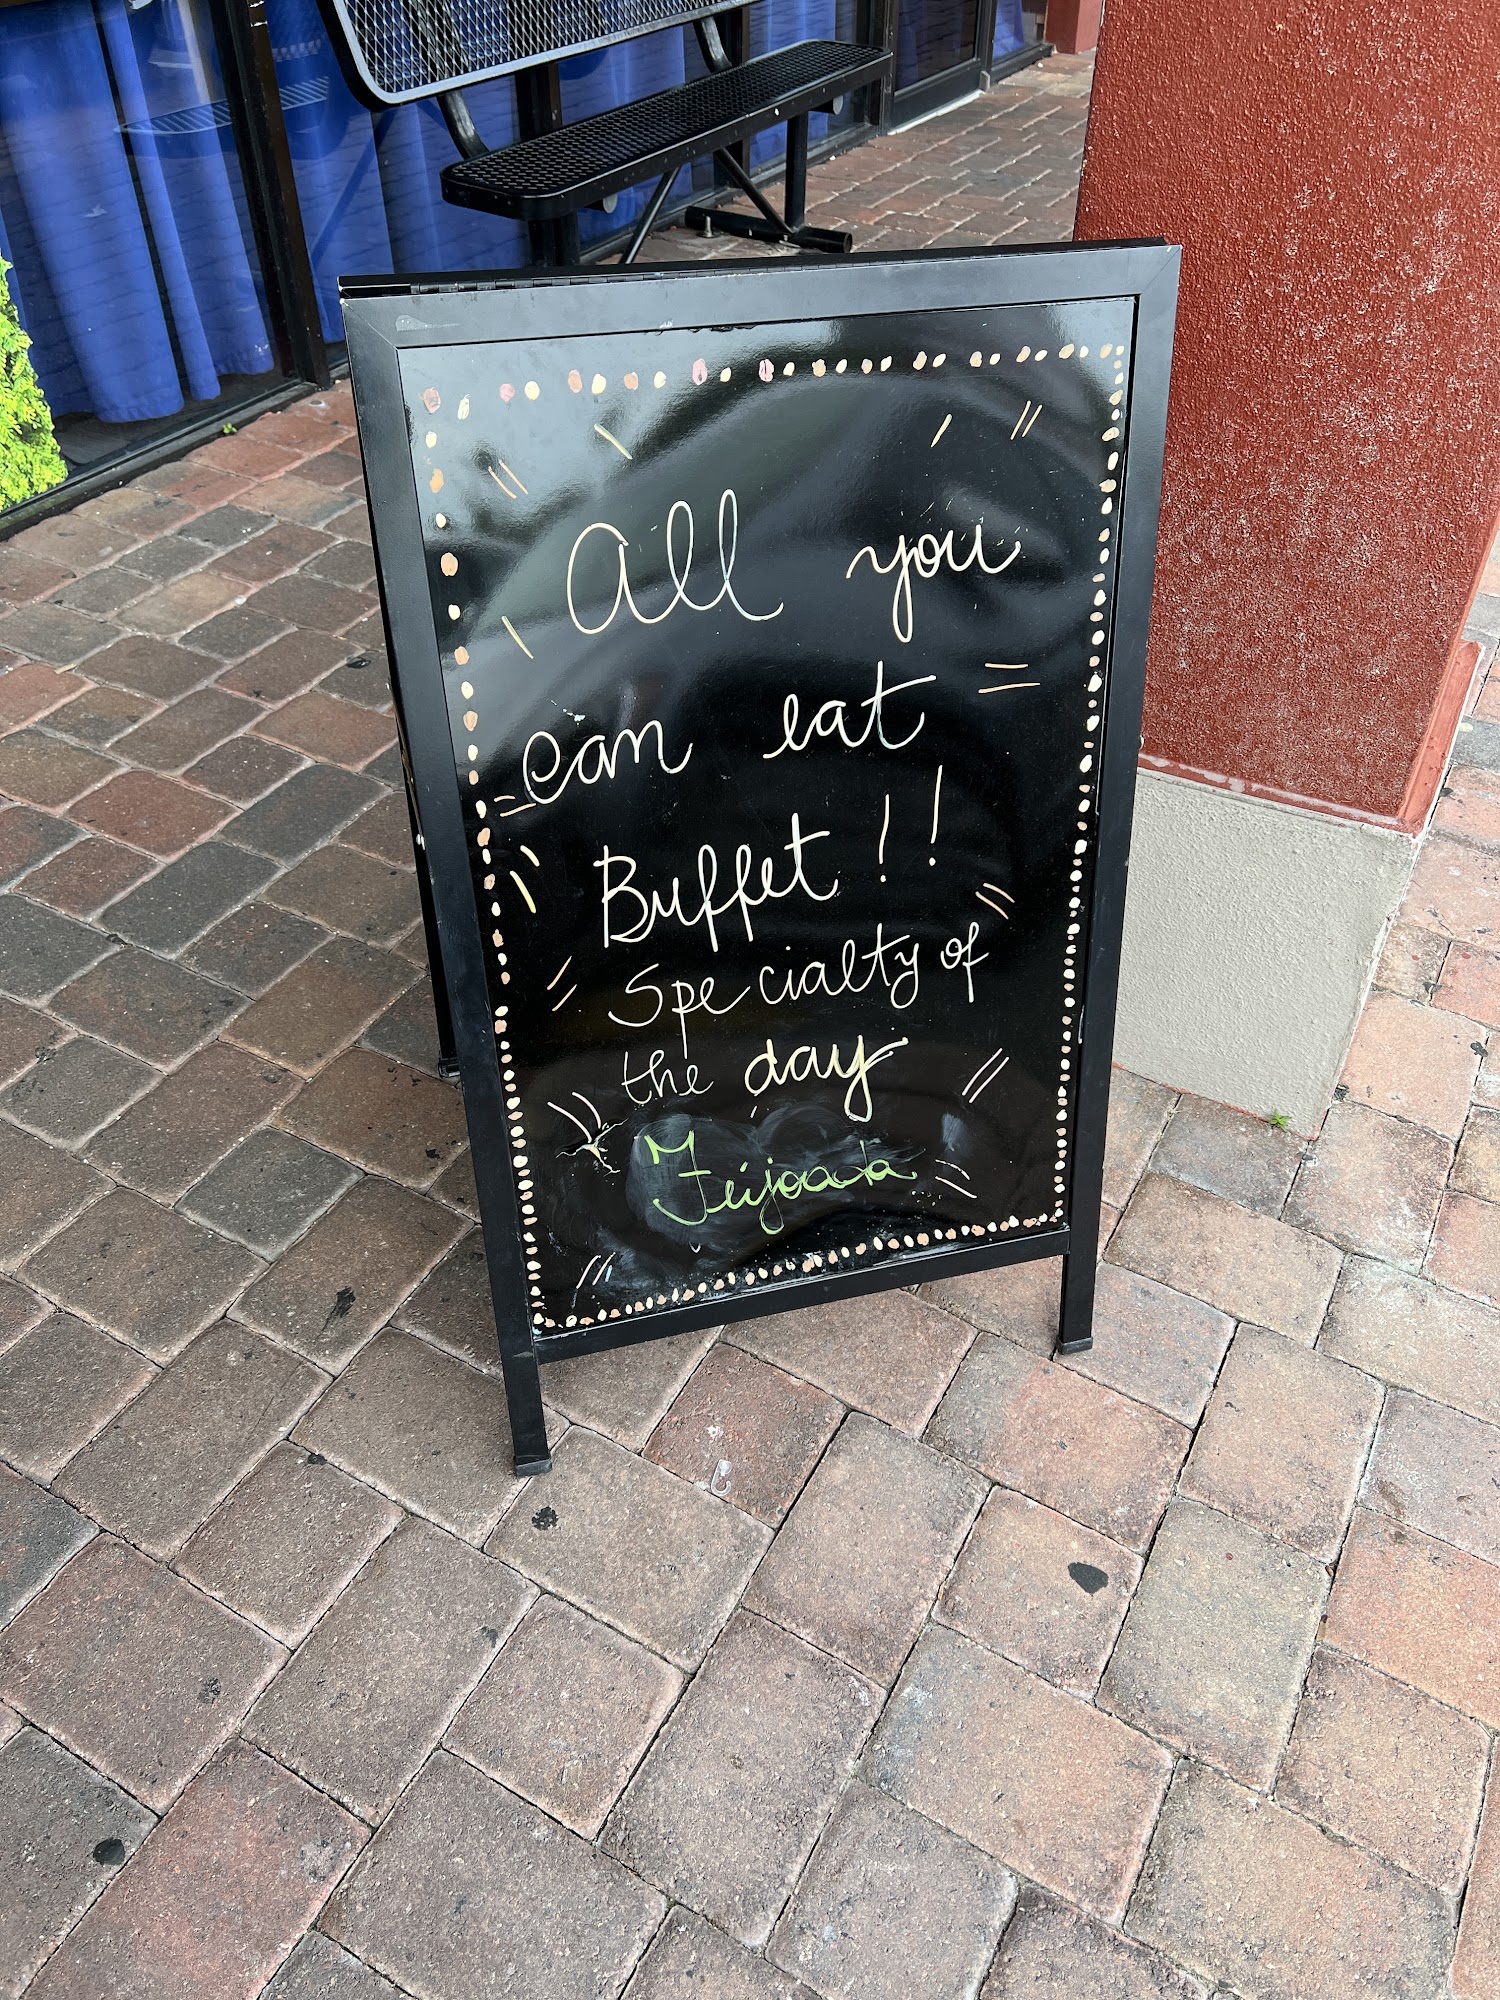 All you
can eat
Buffet!!
Specialty of
the day
Feijoada